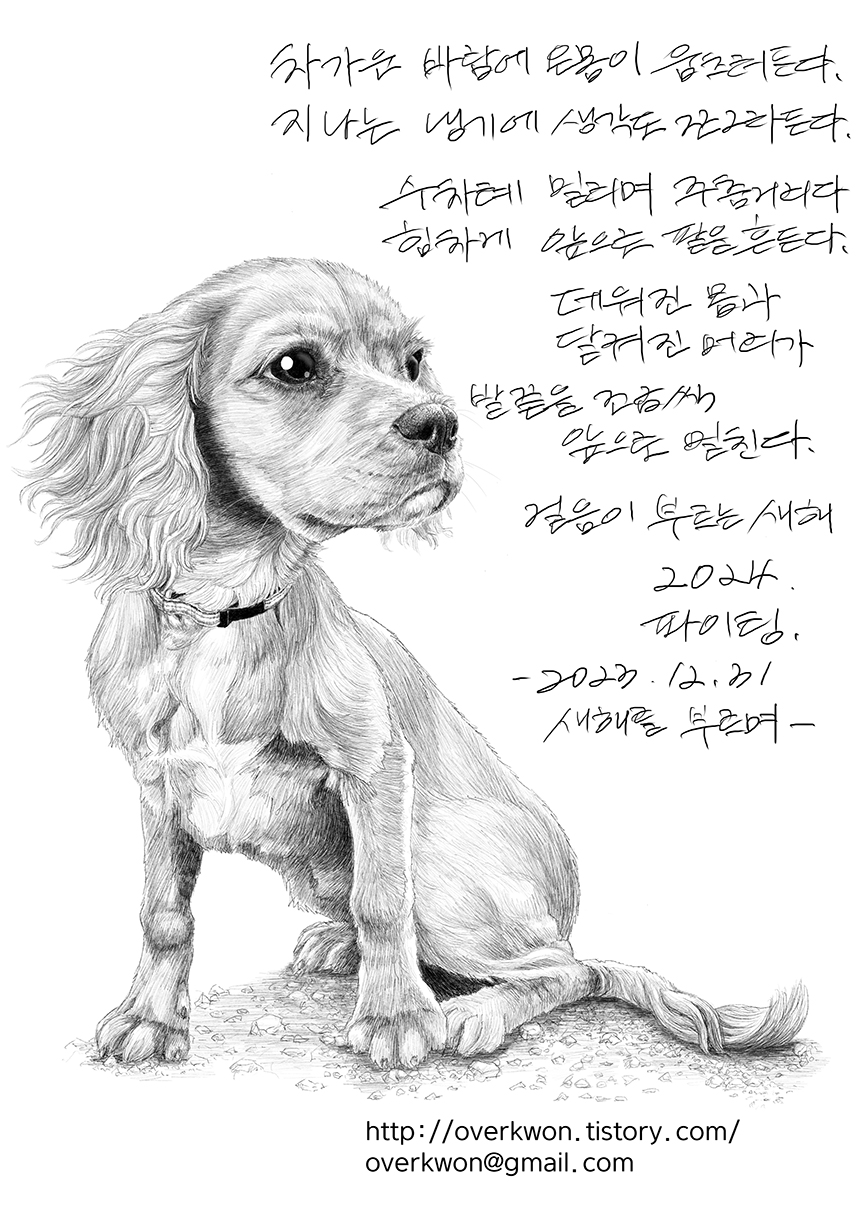 차가운 바람에 온몸이 움츠려든다.
지나는 냉기에 생각도 쪼그라든다.
수차례 밀리며 주춤거리다
힘차게 앞으로 팔을 흔든다.
데워진 몸과
달궈진 머리가
발끝을 조금씩
앞으로 밀친다.
걸음이 부르는 새해
2024.
파이팅.
-2023.12.31
새해를 부르며-
http://overkwon.tistory.com/
overkwon@gmail.com